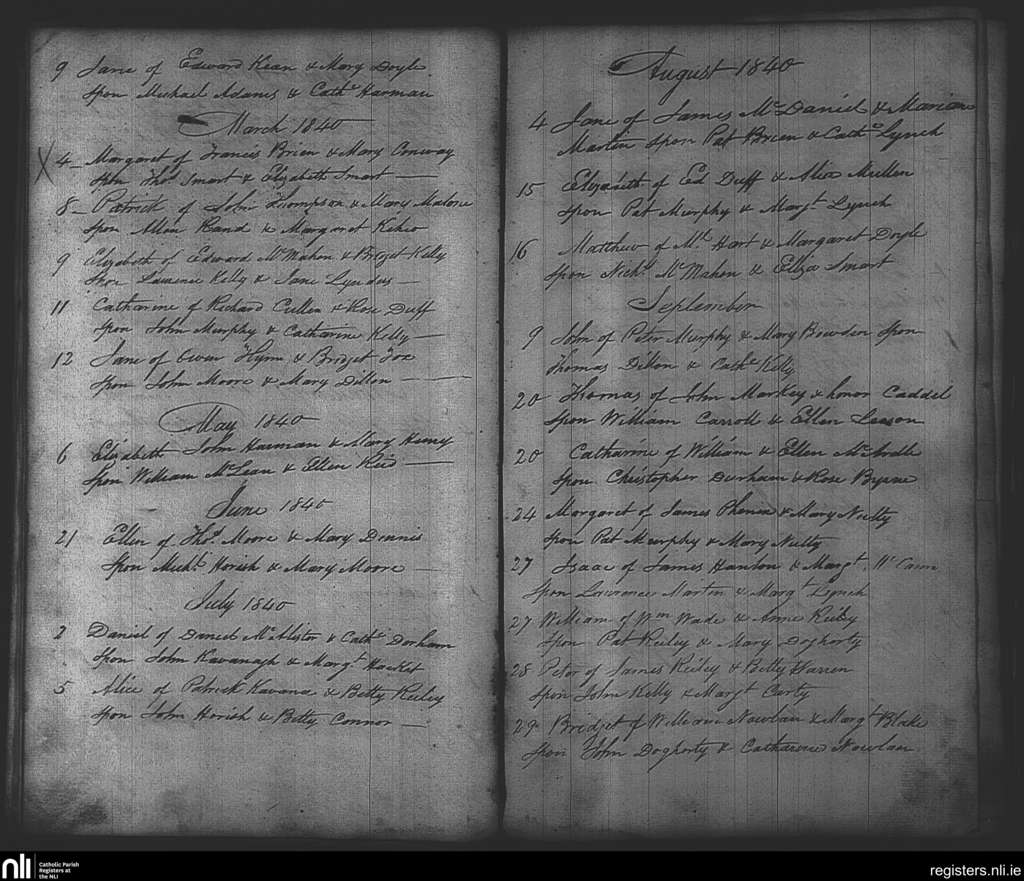 9 Jane of Edward Kean & Mary Doyle
Spon Michael Adams & Cathe Harman
March 1840
X 4 Margaret of Francis Brien & Mary Conway
Spon Thos Smart & Elizabeth Smart
8 Patrick of John Thompson & Mary Malone
Spon Allen Rand & Margaret Kehoe
9 Elizabeth of Edward McMahon & Bridget Kelly
Spon Laurence Kelly & Jane
11 Catharine of Richard Cullen & Rose Duff
Spon John Murphy & Catharine Kelly
12 Jane of Owen Flynn & Bridget Fox
Spon John Moore & Mary Dillon
May 1840
6 Elizabeth John Harman & Mary Henry
Spon William McLean & Ellen Reid
June 1840
21 Ellen of Thos Moore & Mary Dennis
Spon Michl Horish & Mary Moore
July 1840
2 Daniel of Daniel McAlister & Cathe Dorham
Spon John Kavanagh & Margt Hacket
5 Alice of Patrick Kavana & Betty Reiley
Spon John Horish & Betty Connor
August 1840
4 Jane of James McDaniel & Marian
Martin Spon Pat Brien & Cathe Lynch
15 Elizabeth of Ed Duff & Alice Mullen
Spon Pat Murphy & Margt Lynch
16 Matthew of Ml Hart & Margaret Doyle
Spon Nichs McMahon & Eliza Smart
September
9 John of Peter Murphy & Mary Bowden Spon
Thomas Dillon & Cathe Kelly
20 Thomas of John Markey & honor Caddel
Spon William Carroll & Ellen Lawson
20 Catharine of William & Ellen McArdle
Spon Christopher Durham & Rose Byrne
24 Margaret of James & Mary Nulty
Spon Pat Murphy & Mary Nulty
27 Isaac of James Hanlon & Margt McCann
Spon Lawrence Martin & Margt Lynch
27 William of Wm Wade & Anne Reiley
Spon Pat Reiley & Mary Doghorty
28 Peter of James Reiley & Betty Warren
Spon John Kelly & Margt Carty
29 Bridget of William Nowlan & Margt Blake
Spon John Doghorty & Catharine Nowlan
nli Catholic Parish
Registers at
the NLI
registers.nli.ie